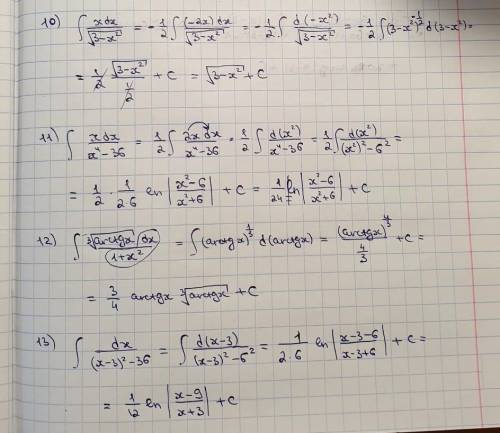 10) ∫ xdx/√(3-x²) = -1/2 ∫ (-2x)dx/√(3-x²) = -1/2 ∫ d(-x²)/√(3-x²) = -1/2 ∫ (3-x²)^(-1/2) d(3-x²) =
= 1/2 √(3-x²)/(1/2) + C = √(3-x²) + C
11) ∫ xdx/(x⁴-36) = 1/2 ∫ 2xdx/(x⁴-36) = 1/2 ∫ d(x²)/(x⁴-36) = 1/2 ∫ d(x²)/((x²)²-6²) =
= 1/2 · 1/(2·6) ln |(x²-6)/(x²+6)| + C = 1/24 ln |(x²-6)/(x²+6)| + C
12) ∫ ∛(arctgx) dx/(1+x²) = ∫ (arctgx)^(1/3) d(arctgx) = (arctgx)^(4/3)/(4/3) + C =
= 3/4 arctgx ∛(arctgx) + C
13) ∫ dx/((x-3)²-36) = ∫ d(x-3)/((x-3)²-6²) = 1/(2·6) ln |(x-3-6)/(x-3+6)| + C =
= 1/12 ln |(x-9)/(x+3)| + C